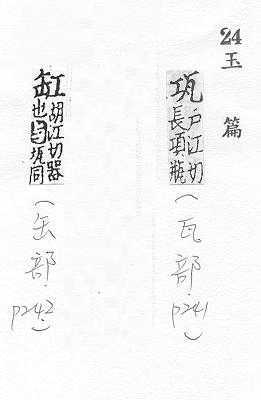 24 玉篇
瓨 户江切
長項瓶
(瓦部.p241)
缸 胡江切器
也与瓨同
(缶部.p242.)